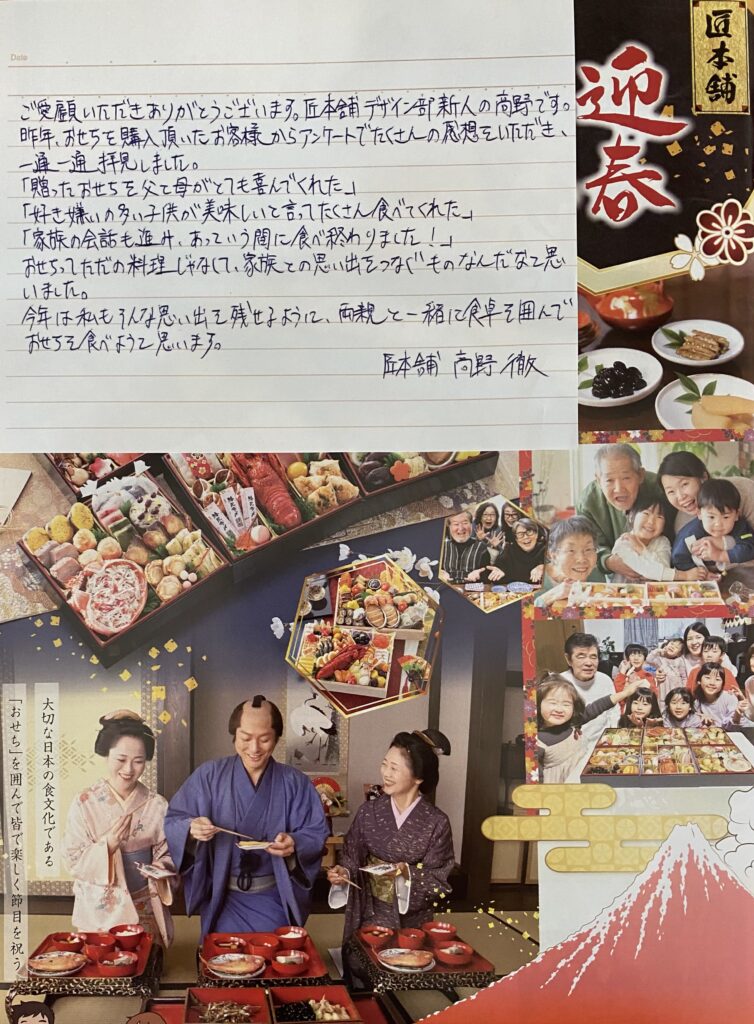 Date
ご愛顧いただきありがとうございます。匠本舗デザイン部新人の高野です。
昨年、おせちを購入頂いたお客様からアンケートでたくさんの感想をいただき、
一通一通拝見しました。
「贈ったおせちを父と母がとても喜んでくれた」
「好き嫌いの多い子供が美味しいと言ってたくさん食べてくれた」
「家族の会話も進み、あっていう間に食べ終わりました！」
おせちってただの料理じゃなくて、家族との思い出をつなぐものなんだなと思
いました。
今年は私もそんな思い出を残せるように、両親と一緒に食卓を囲んで
おせちを食べようと思います。
匠本舗 高野 徹
匠本舗
迎春
大切な日本の食文化である
「おせち」を囲んで皆で楽しく節目を祝う